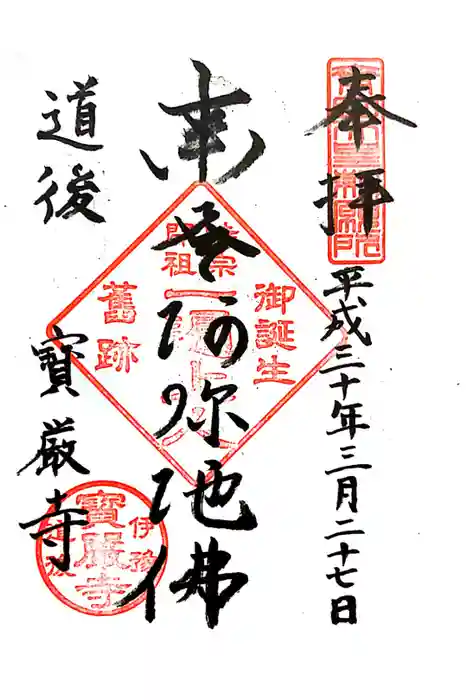 奉拝
平成三十年三月二十七日
南無阿弥陀佛
道後 寳厳寺
御誕生
時宗
開祖
一遍上人
舊跡
伊豫
寳嚴寺
道後